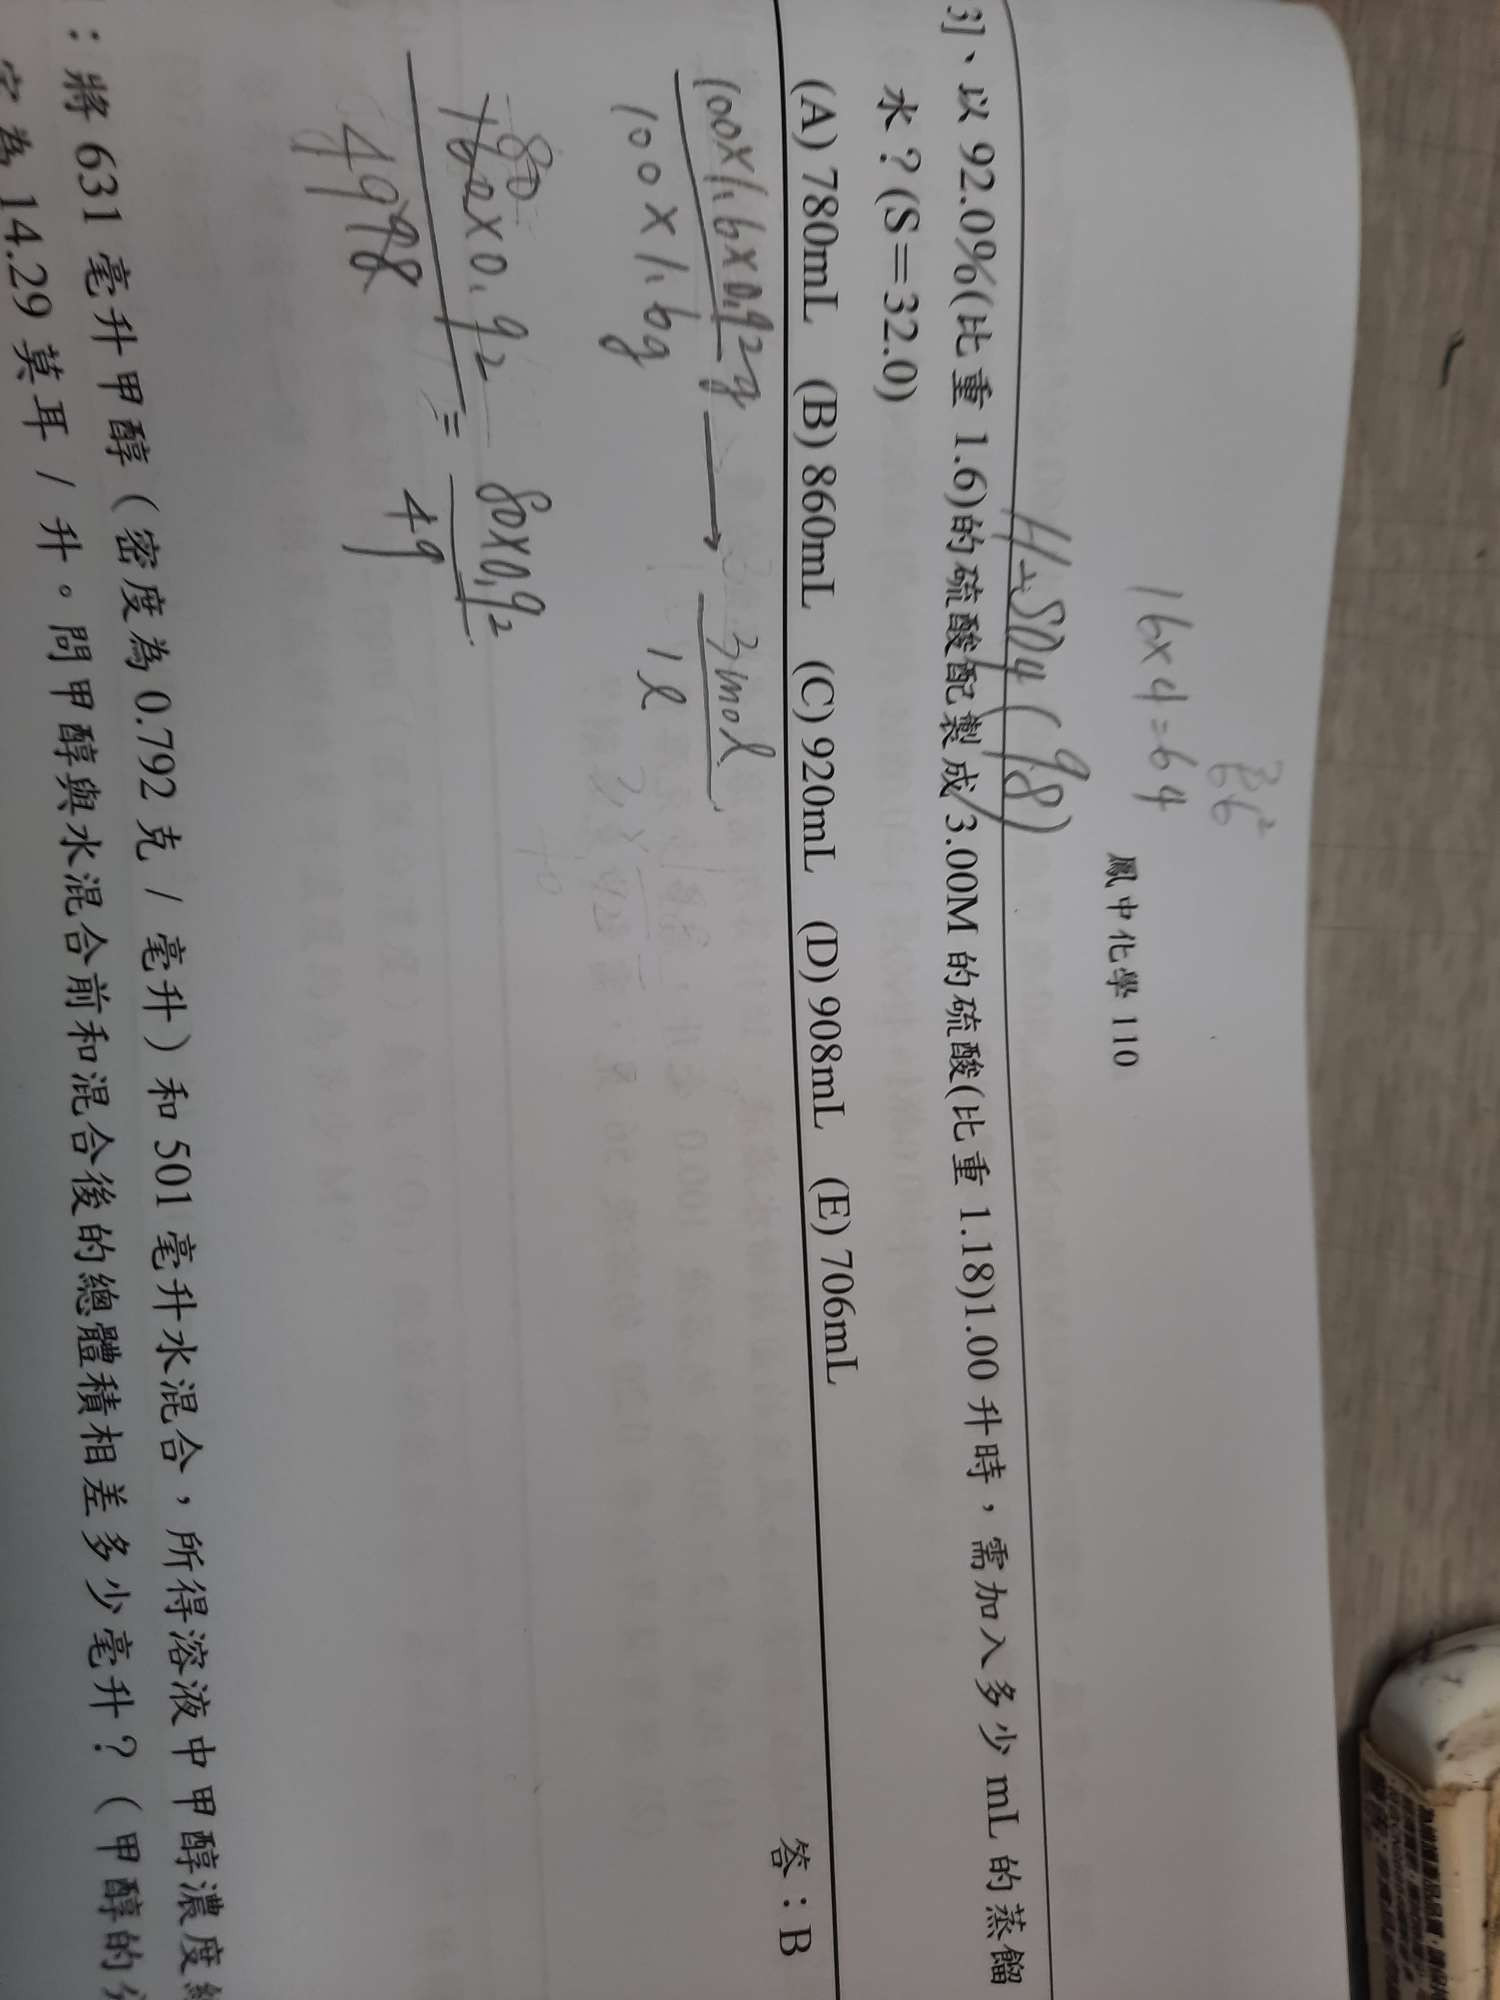 16×4=64
鳳中化學 110
H₂SO₄(98)
、以 92.0%(比重 1.6)的硫酸配製成 3.00M 的硫酸(比重 1.18)1.00 升時，需加入多少 mL 的蒸餾
水？(S＝32.0)
(A) 780mL (B) 860mL (C) 920mL (D) 908mL (E) 706mL
答：B
100×1.6×0.92g → 3mol
100×1.6g 1l
80
160×0.92 = 80×0.92
98 49
49
：將 631 毫升甲醇（密度為 0.792 克 / 毫升）和 501 毫升水混合，所得溶液中甲醇濃度
為 14.29 莫耳 / 升。問甲醇與水混合前和混合後的總體積相差多少毫升？（甲醇的